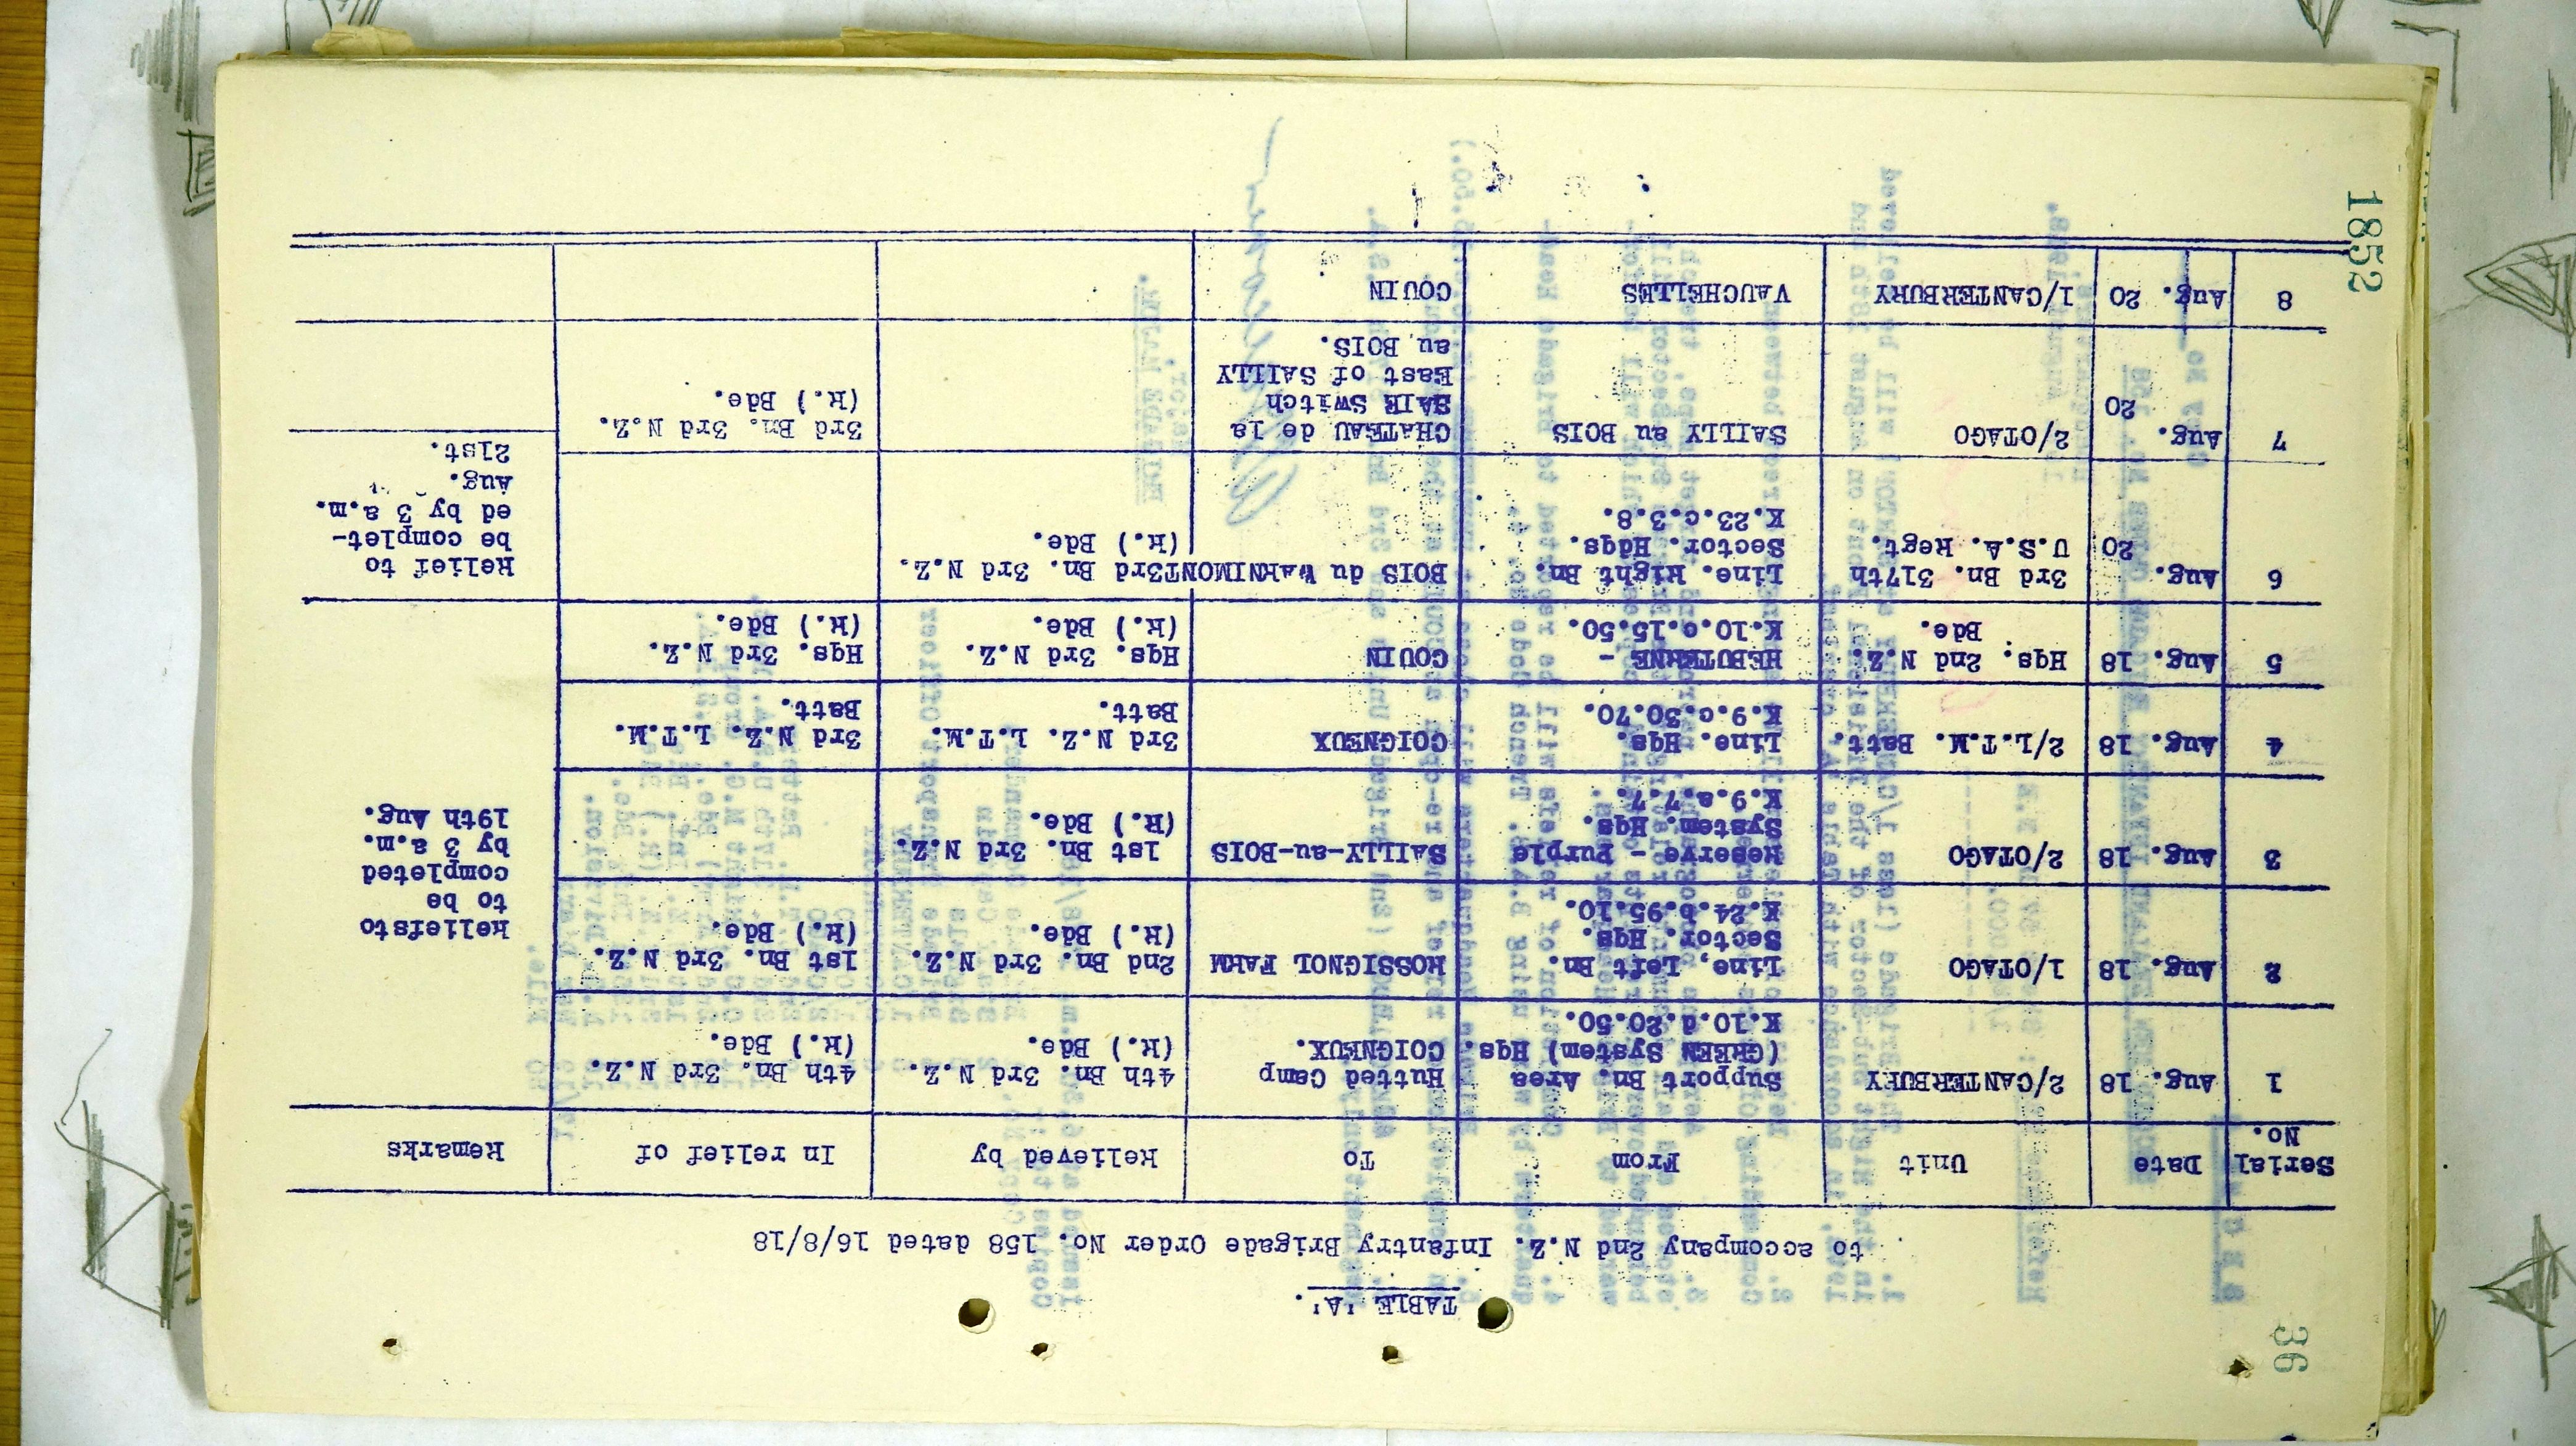 TABLE 'A'.
to accompany 2nd N.Z. Infantry Brigade Order No. 158 dated 16/8/18
Serial No. Date Unit From To Relieved by In relief of Remarks
1 Aug. 18 2/CANTERBURY Support Bn. Area (GREEN System) Hqs. K.10.d.20.50. Hutted Camp COIGNEUX. 4th Bn. 3rd N.Z. (R.) Bde. 4th Bn. 3rd N.Z. (R.) Bde.
2 Aug. 18 1/OTAGO Line, Left Bn. Sector. Hqs. K.24.b.95.10. ROSSIGNOL FARM 2nd Bn. 3rd N.Z. (R.) Bde. 1st Bn. 3rd N.Z. (R.) Bde. Reliefsto to be completed by 3 a.m. 19th Aug.
3 Aug. 18 2/OTAGO Reserve - Purple System. Hqs. K.9.a.7.7. SAILLY-au-BOIS 1st Bn. 3rd N.Z. (R.) Bde.
4 Aug. 18 2/L.T.M. Batt. Line. Hqs. K.9.c.30.70. COIGNEUX 3rd N.Z. L.T.M. Batt. 3rd N.Z. L.T.M. Batt.
5 Aug. 18 Hqs. 2nd N.Z. Bde. HEBUTERNE - K.10.c.15.50. COUIN Hqs. 3rd N.Z. (R.) Bde. Hqs. 3rd N.Z. (R.) Bde.
6 Aug. 20 3rd Bn. 317th U.S.A. Regt. Line. Right Bn. Sector. Hdqs. K.23.c.3.8. BOIS du WARNIMONT 3rd Bn. 3rd N.Z. (R.) Bde. Relief to be complet- ed by 3 a.m. Aug. 21st.
7 Aug. 20 2/OTAGO SAILLY au BOIS CHATEAU de la HAIE Switch East of SAILLY au BOIS. 3rd Bn. 3rd N.Z. (R.) Bde.
8 Aug. 20 1/CANTERBURY VAUCHELLES COUIN
1852
36